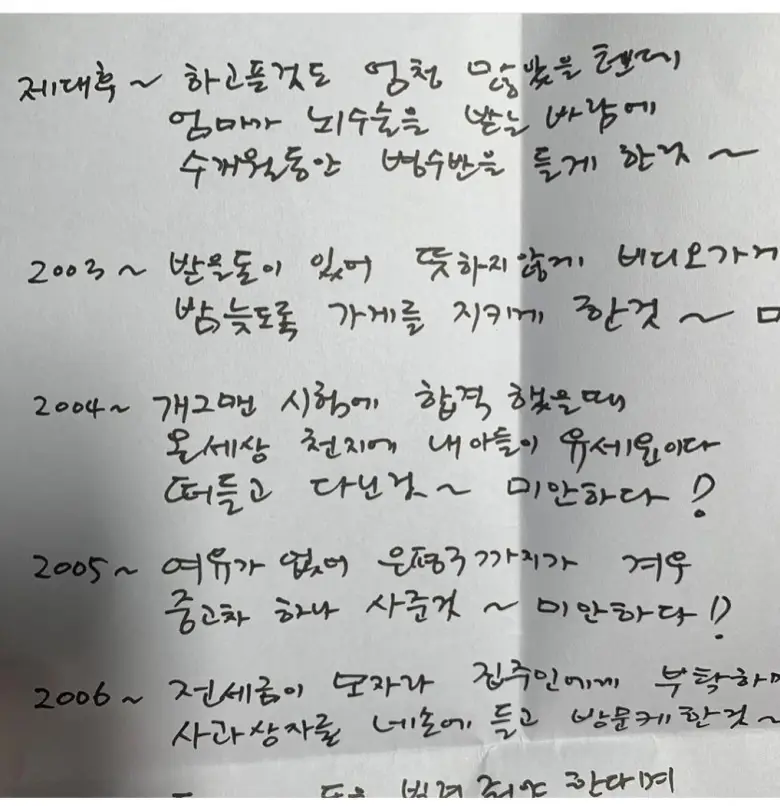 제대후 ~ 하고픈것도 엄청 많았을 텐데
엄마가 뇌수술을 받는 바람에
수개월동안 병수반을 들게 한것 ~
2003 ~ 받을돈이 있어 뜻하지않게 비디오가게
밤늦도록 가게를 지키게 한것 ~ 미
2004 ~ 개그맨 시험에 합격 했을때
온세상 천지에 내아들이 유세윤이다
떠들고 다닌것 ~ 미안하다 !?
2005 ~ 여유가 없어 은평구까지가 겨우
중고차 하나 사준것 ~ 미안하다 !?
2006 ~ 전세금이 모자라 집주인에게 부탁하며
사과상자를 네손에 들고 방문케한것 ~
한다며